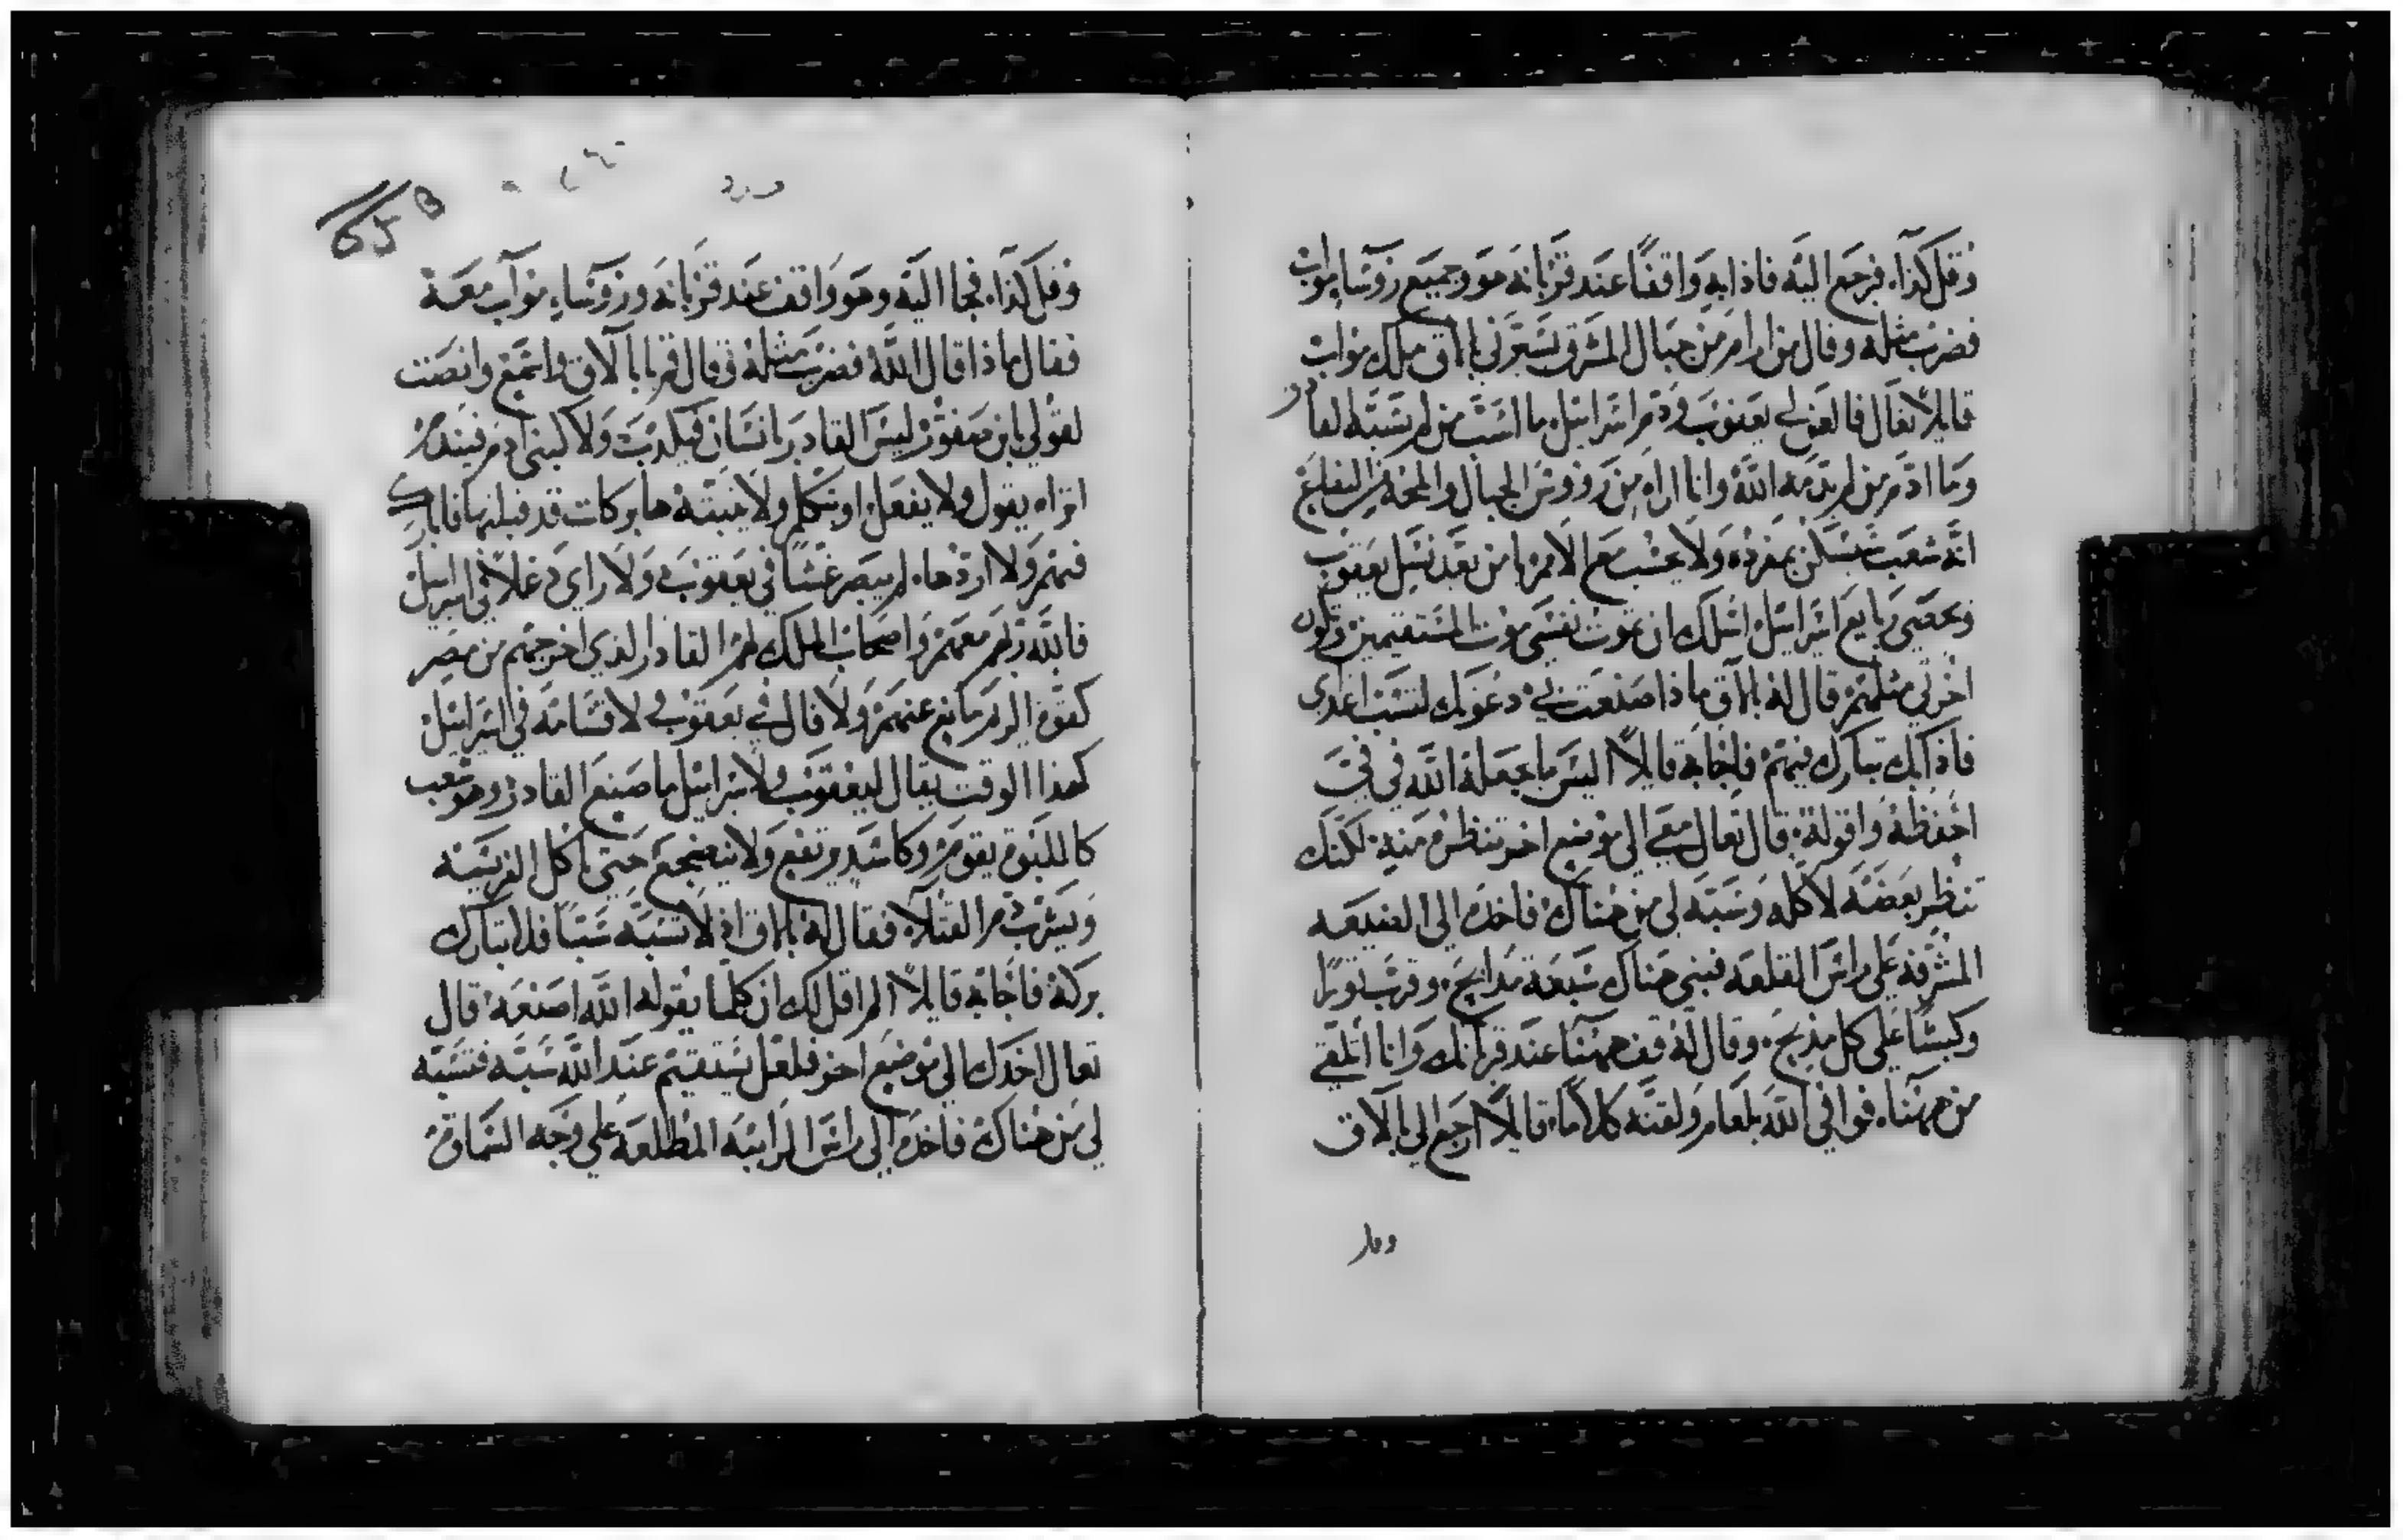 وقل كذا. فرجع اليه فاذا به واقفا عند قربانه هو وجميع روسا مواب
فضرب مثله وقال من ارام من جبال المشرق يسيرني بالاق ملك مواب
قايلا تعال فالعن لي يعقوب وذم اسراىيل ما اسب من لم يسبه القادر
وما اذم من لم يذمه الله وانا اراه من رووس الجبال والمحه من اليفاع
انه شعب يسكن بمفرده ولا يحسب مع الامم يا من يعد نسل يعقوب
ويحصي ربايع اسراىيل اسلك ان تموت نفسي موت المستقيمين وتكون
اخرتي مثلهم قال له بالاق ماذا صنعت بي دعوتك لتسب اعداي
فاذا بك تبارك فيهم فاجابه قايلا اليس ما يجعله الله في في
احفظه واقوله. قال تعال معي الى موضع اخر تنظره منه. لكنك
تنظر بعضه لا كله وسبه لي من هناك فاخده الى الضيعه
المشرفه على راس القلعه فبنى هناك سبعة مدابح. وقرب ثورا
وكبشا على كل مدبح. وقال له قف ههنا عند قربانك وانا اتلقى
من ههنا. فوافى الله بلعام ولقنه كلاما. قايلا ارجع الي بالاق
وقل
وقل كذا. فجا اليه وهو واقف عند قربانه وروسا. مواب معه
فقال ماذا قال الله فضرب مثله وقال قم يا بالاق واسمع وانصت
لقولي يا بن صفور ليس القادر بانسان فيكدب ولا كبني ادم فيندم
اتراه يقول ولا يفعل. او يتكلم ولا يثبته ها بركات قد قبلتها فابارك
فيهم ولا اردها. لم يبصر غشا في يعقوب ولا راي دغلا في اسراىيل
فالله ربهم معهم واصحاب الملك لهم القادر الدي اخرجهم من مصر
كقوة الريم مانع عنهم ولا فال في يعقوب ولا قسامه في اسراىيل
كهذا الوقت يقال ليعقوب ولاسراىيل ما صنع القادر وهو شعب
كاللبوه يقوم. وكاسد يرتفع ولا ينضجع حتى ياكل الفريسه
ويشرب دم القتلا. فقال له بالاق اذ لا تسبه سبا فلا تبارك
بركة فاجابه قايلا الم اقل لك ان كلما يقوله الله اصنعه قال
تعال اخدك الى موضع اخر فلعل يستقيم عند الله سبه فتسبه
لي من هناك فاخده الى راس الرابيه المطلعه على وجه السماوة
65 B